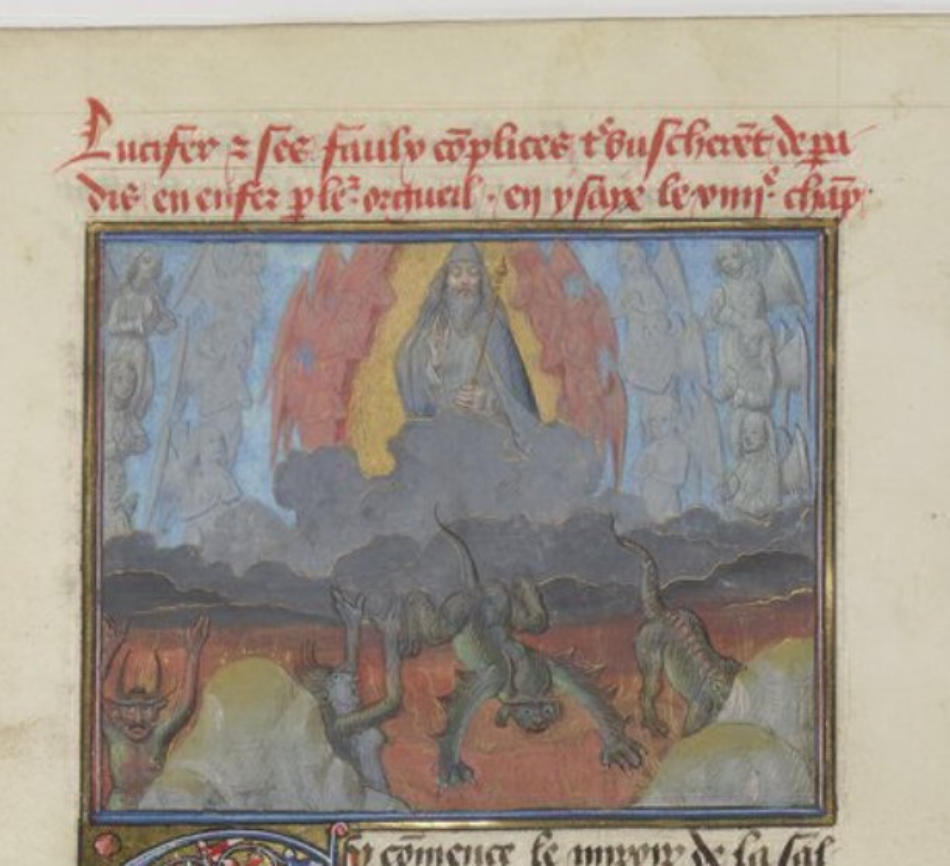 Lucifer ⁊ ses faulx cōplices t°buscherēt de pa
dis en enfer p le² orgueil · en ysaye le xiiii^e chap̄
Cy cōmence le miroir de la sal